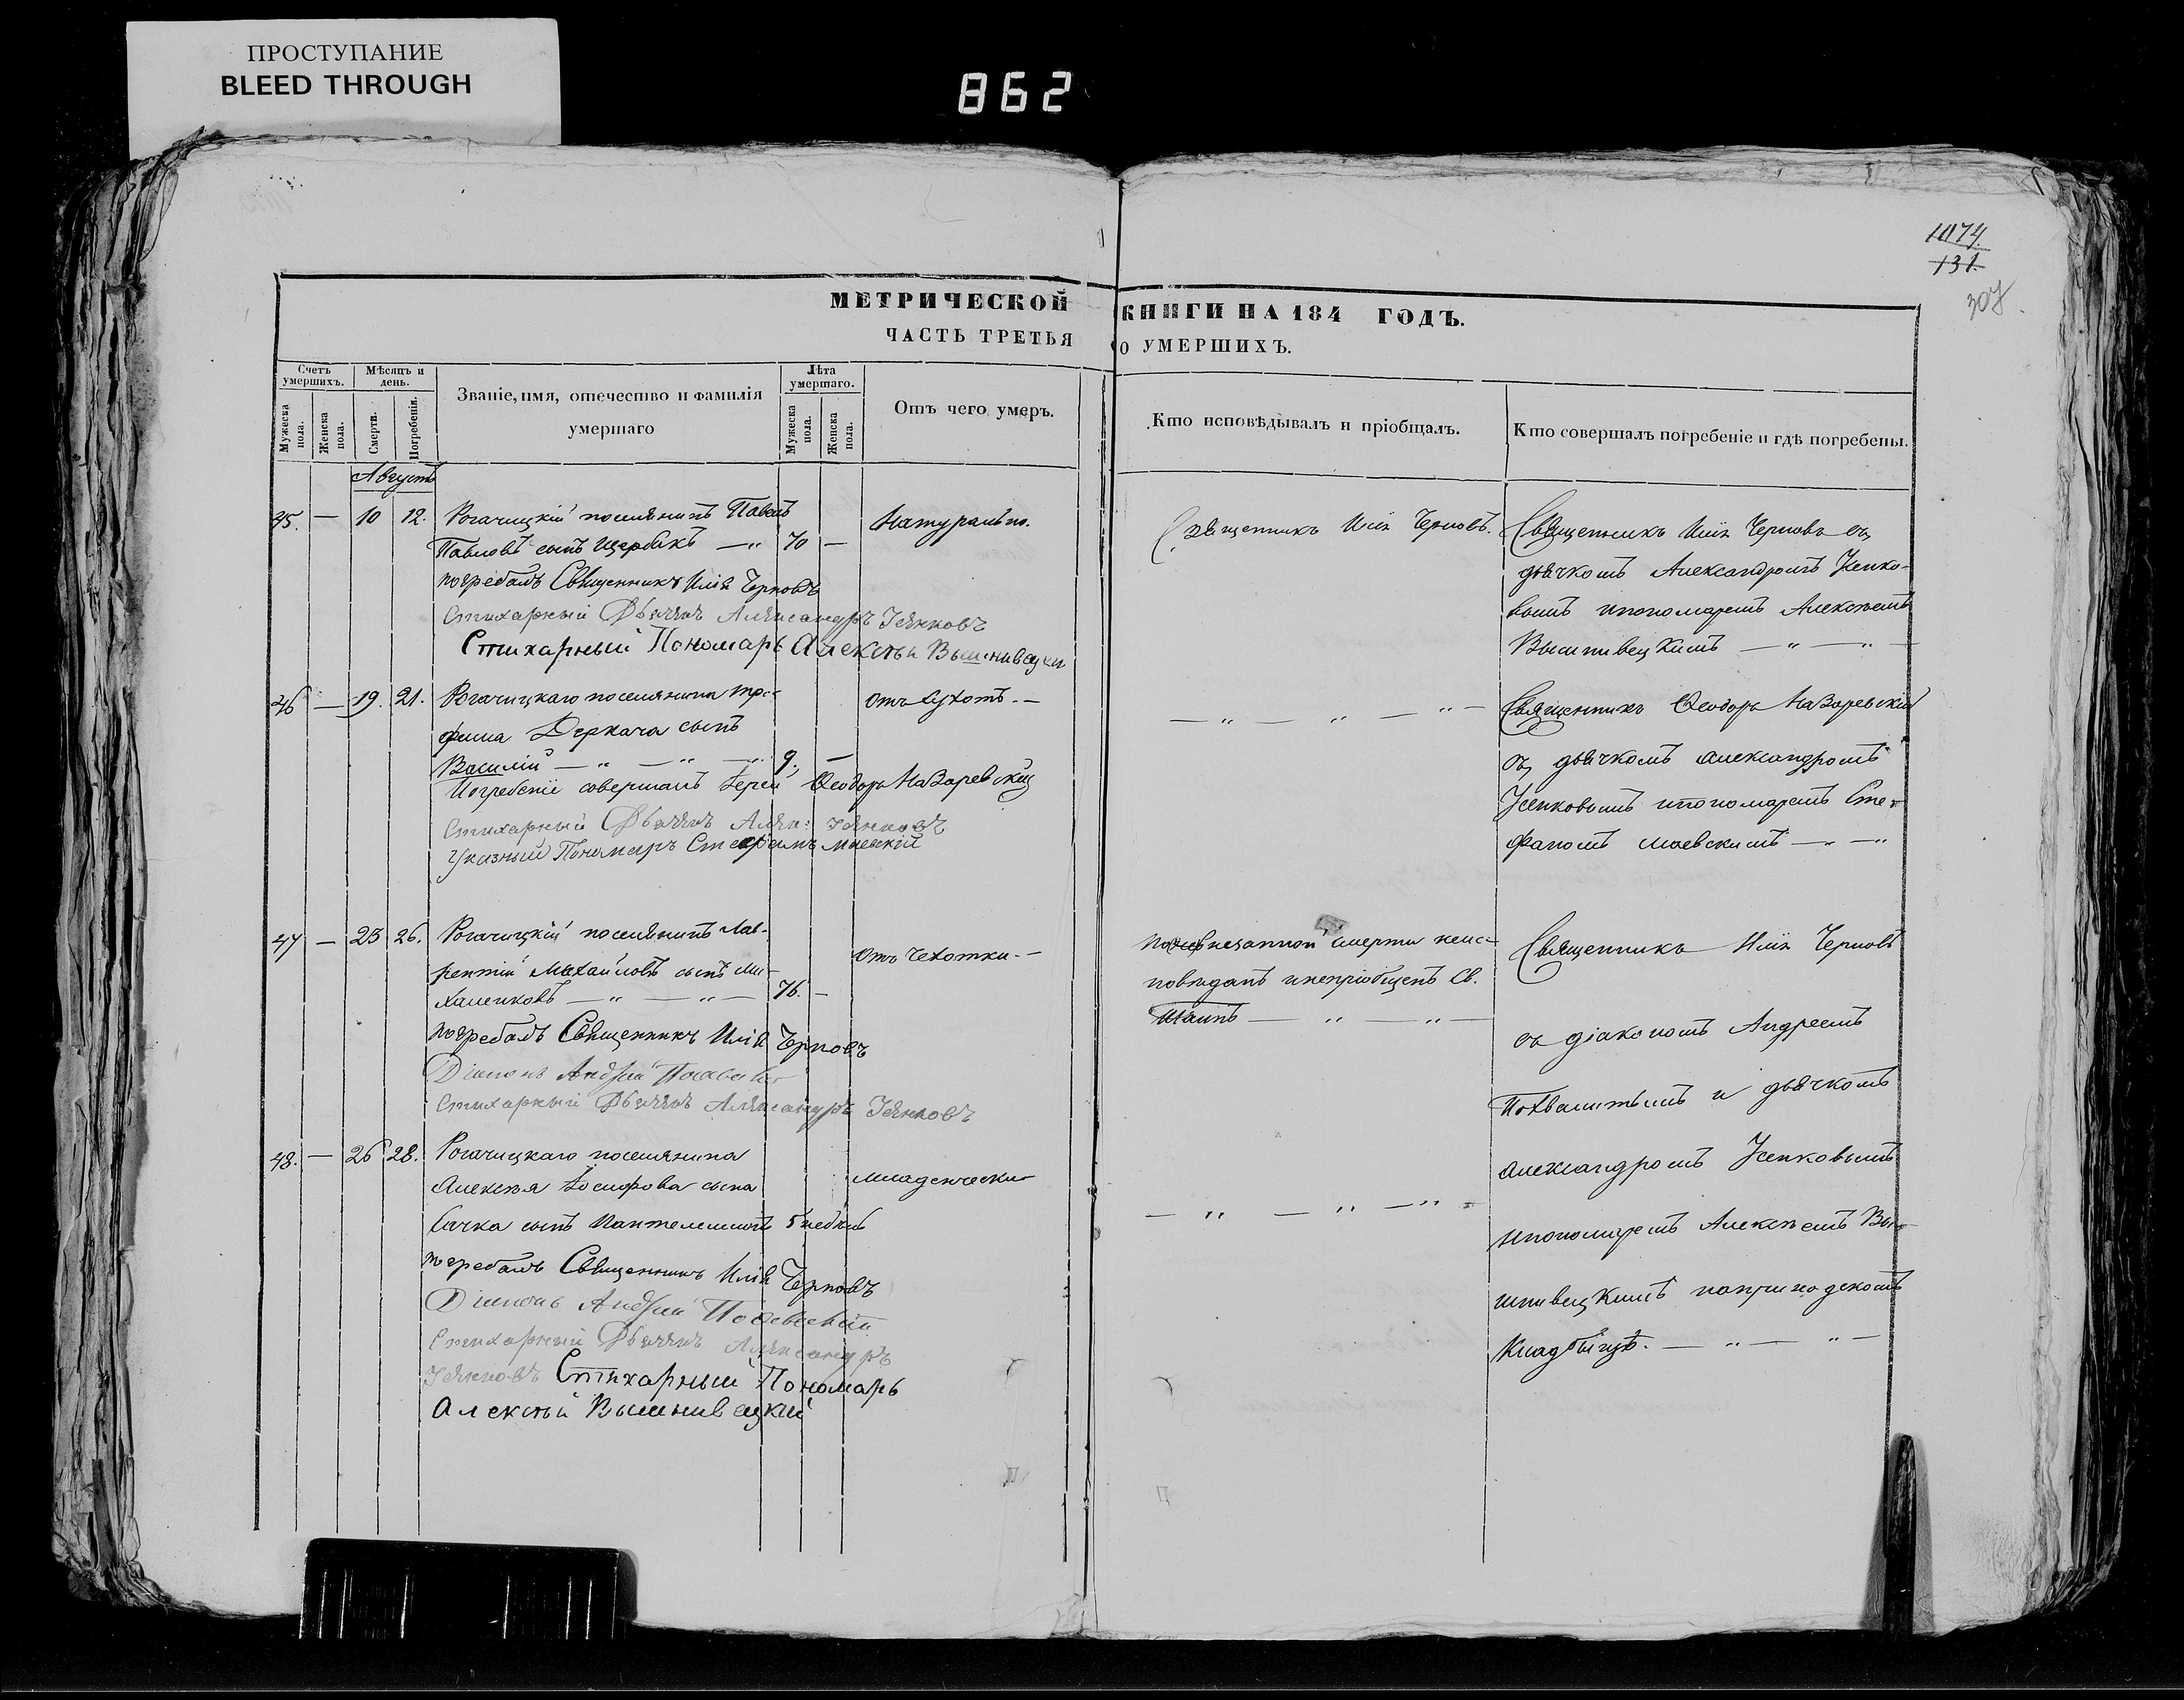 ПРОСТУПАНИЕ
BLEED THROUGH
862
1074.
131.
307.
МЕТРИЧЕСКОЙ КНИГИ НА 184 ГОДЪ.
ЧАСТЬ ТРЕТЬЯ О УМЕРШИХЪ.
Счетъ умершихъ.
Мѣсяцъ и день.
Званіе, имя, отечество и фамилія умершаго
Лѣта умершаго.
Отъ чего умеръ.
Кто исповѣдывалъ и пріобщалъ.
Кто совершалъ погребеніе и гдѣ погребены.
Мужеска пола.
Женска пола.
Смерти.
Погребенія.
Мужеска пола.
Женска пола.
Августъ
45. — 10 12. Рогачицкій поселянинъ Павелъ
Павловъ сынъ Щербакъ — „ 70 —
Натурально.
погребалъ Священникъ Илія Черновъ
Стихарный Дьячекъ Александръ Усенковъ
Стихарный Пономарь Алексѣй Вышнивецкій
Священникъ Илія Черновъ.
Священникъ Илія Черновъ съ
дьячкомъ Александромъ Усенко-
вымъ ипономаремъ Алексѣемъ
Вышнивецкимъ — „ — „ —
46 — 19. 21. Рогачицкаго поселянина Тро-
фима Деркача сынъ
Василій — „ — „ — „ 9. —
отъ Сухотъ. —
Погребеніе совершалъ Іерей Ѳеодоръ Назаревскій
Стихарный Дьячекъ Алек: Усенковъ
Указный Пономарь Стефанъ Маевскій
— „ — „ — „ —
Священникъ Ѳеодоръ Назаревскій
съ дьячкомъ Александромъ
Усенковымъ ипономаремъ Сте-
фаномъ Маевскимъ — „ — „
47 — 23 26. Рогачицкій поселянинъ Лав-
рентій Михайловъ сынъ Ми-
халенковъ — „ — „ — 76. —
Отъ Чехотки. —
погребалъ Священникъ Илія Черновъ
Діаконъ Андрей
Стихарный Дьячекъ Александръ Усенковъ
внезапной смерти неис-
повѣданъ инепріобщенъ Св.
Таинъ — „ — „ —
Священникъ Илія Черновъ
съ діакономъ Андреемъ
Похвалитымъ и дьячкомъ
Александромъ Усенковымъ
ипономаремъ Алексѣемъ Вы-
шнивецкимъ наприходскомъ
Кладбищѣ. — „ — „ —
48. — 26 28. Рогачицкаго поселянина
Алексѣя Іосифова сына
Сачка сынъ Пантелеимонъ 5 недѣль
младенчески
погребалъ Священникъ Илія Черновъ
Діаконъ Андрей
Стихарный Дьячекъ Александръ
Усенковъ Стихарный Пономарь
Алексѣй Вышнивецкій
— „ — „ — „ —